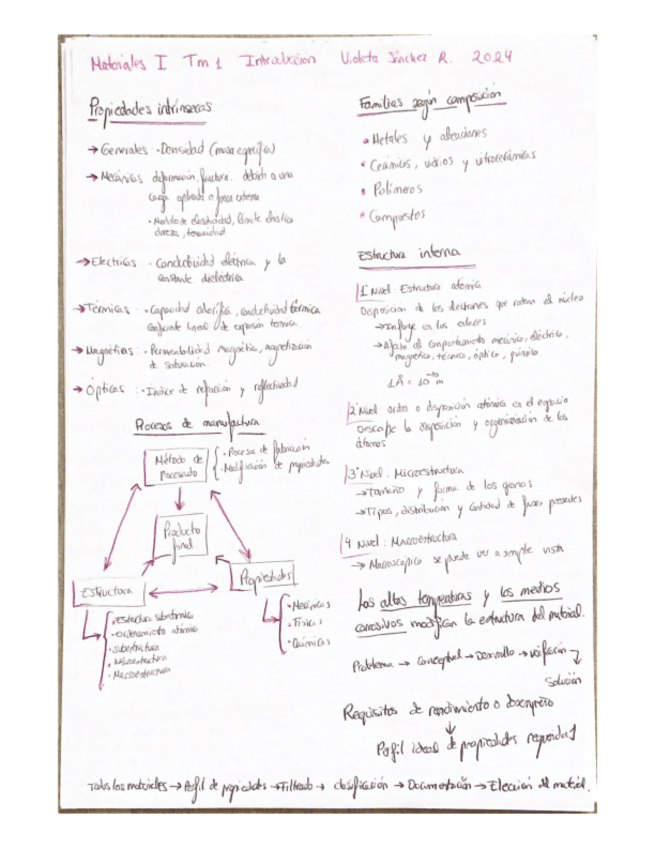 Materiales I Tm 1 Introducción Violeta Sánchez R. 2024
Propiedades intrínsecas
→ Generales · Densidad (masa específica)
→ Mecánicas deformación, fractura.. debido a una
carga aplicada o fuerza externa
· Modulo de elasticidad, límite elástico
dureza, tenacidad
→ Electricas · Conductividad eléctrica y la
constante dielectrica
→ Térmicas : · Capacidad calorífica, conductividad térmica
coeficiente lineal de expansión termica
→ Magnéticas : · Permeabilidad magnética, magnetización
de saturación.
→ Ópticas : · Indice de refracción y reflectividad
Procesos de manufactura
Método de
Procesado
· Proceso de fabricación
· Modificación de propiedades
Producto
final
Estructura
Propiedades
· estructura subatómica
· Ordenamiento atómico
· subestructura
· Microestructura
· Macroestructura
· Mecánicas
· Físicas
· Químicas
Familias según composicion
• Metales y aleaciones
• Cerámicos, vidrios y vitrocerámicas
• Polímeros
• Compuestos
Estructura interna
1º Nivel: Estructura atómica
Disposición de los electrones que rodean al núcleo
→ Influye en los enlaces
→ Afecta al comportamiento mecánico, eléctrico,
magnético, térmico, óptico, químico
1 Å = 10⁻¹⁰ m
2º Nivel: orden o disposición atómica en el espacio
Describe la disposición y organización de los
átomos
3º Nivel: Microestructura
→ Tamaño y forma de los granos
→ Tipos, distribución y cantidad de fases presentes
4 Nivel: Macroestructura
→ Macroscópico se puede ver a simple vista
Las altas temperaturas y los medios
corrosivos modifican la estructura del material.
Problema → conceptual → Desarrollo → verificación
Solución
Requisitos de rendimiento o desempeño
↓
Perfil ideal de propiedades
Todos los materiales → Perfil de propiedades → Filtrado → clasificación → Documentación → Eleccion del material.